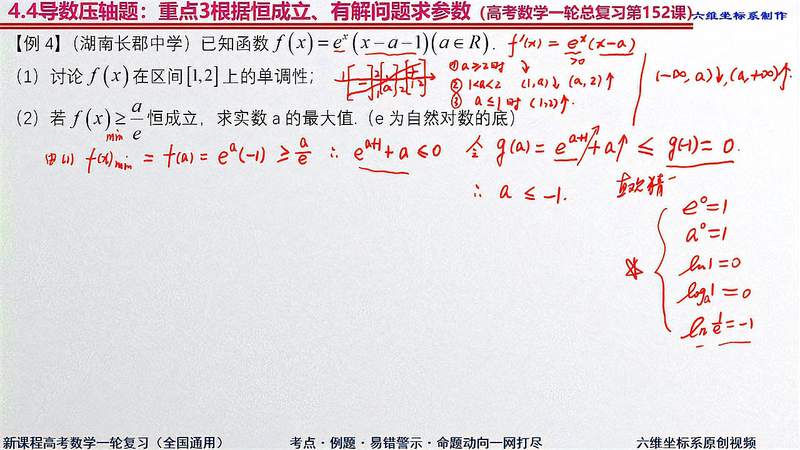 4.4导数压轴题：重点3根据恒成立、有解问题求参数（高考数学一轮总复习第152课）六维坐标系制作
【例 4】（湖南长郡中学）已知函数 f(x)=e^x(x-a-1)(a∈R). f'(x)=e^x(x-a)
>0
（1）讨论 f(x) 在区间[1,2]上的单调性；
① a≥2时 ↓
② 1<a<2 (1,a)↓ (a,2)↑
③ a≤1时 (1,2)↑.
(-∞,a)↓,(a,+∞)↑.
（2）若 f(x)≥a/e 恒成立，求实数 a 的最大值.（e 为自然对数的底）
min
由(1) f(x)min = f(a) = e^a(-1) ≥ a/e ∴ e^(a+1)+a≤0 令 g(a)=e^(a+1)↗+a↑ ≤ g(-1)=0.
∴ a ≤ -1.
e^0=1
a^0=1
ln1=0
log_a 1=0
ln 1/e=-1
新课程高考数学一轮复习（全国通用） 考点·例题·易错警示·命题动向一网打尽 六维坐标系原创视频